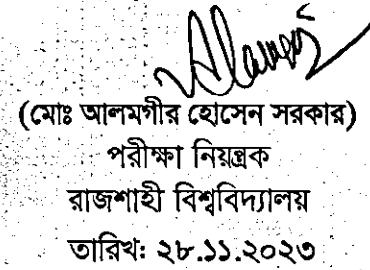 (মোঃ আলমগীর হোসেন সরকার)
পরীক্ষা নিয়ন্ত্রক
রাজশাহী বিশ্ববিদ্যালয়
তারিখঃ ২৮.১১.২০২৩